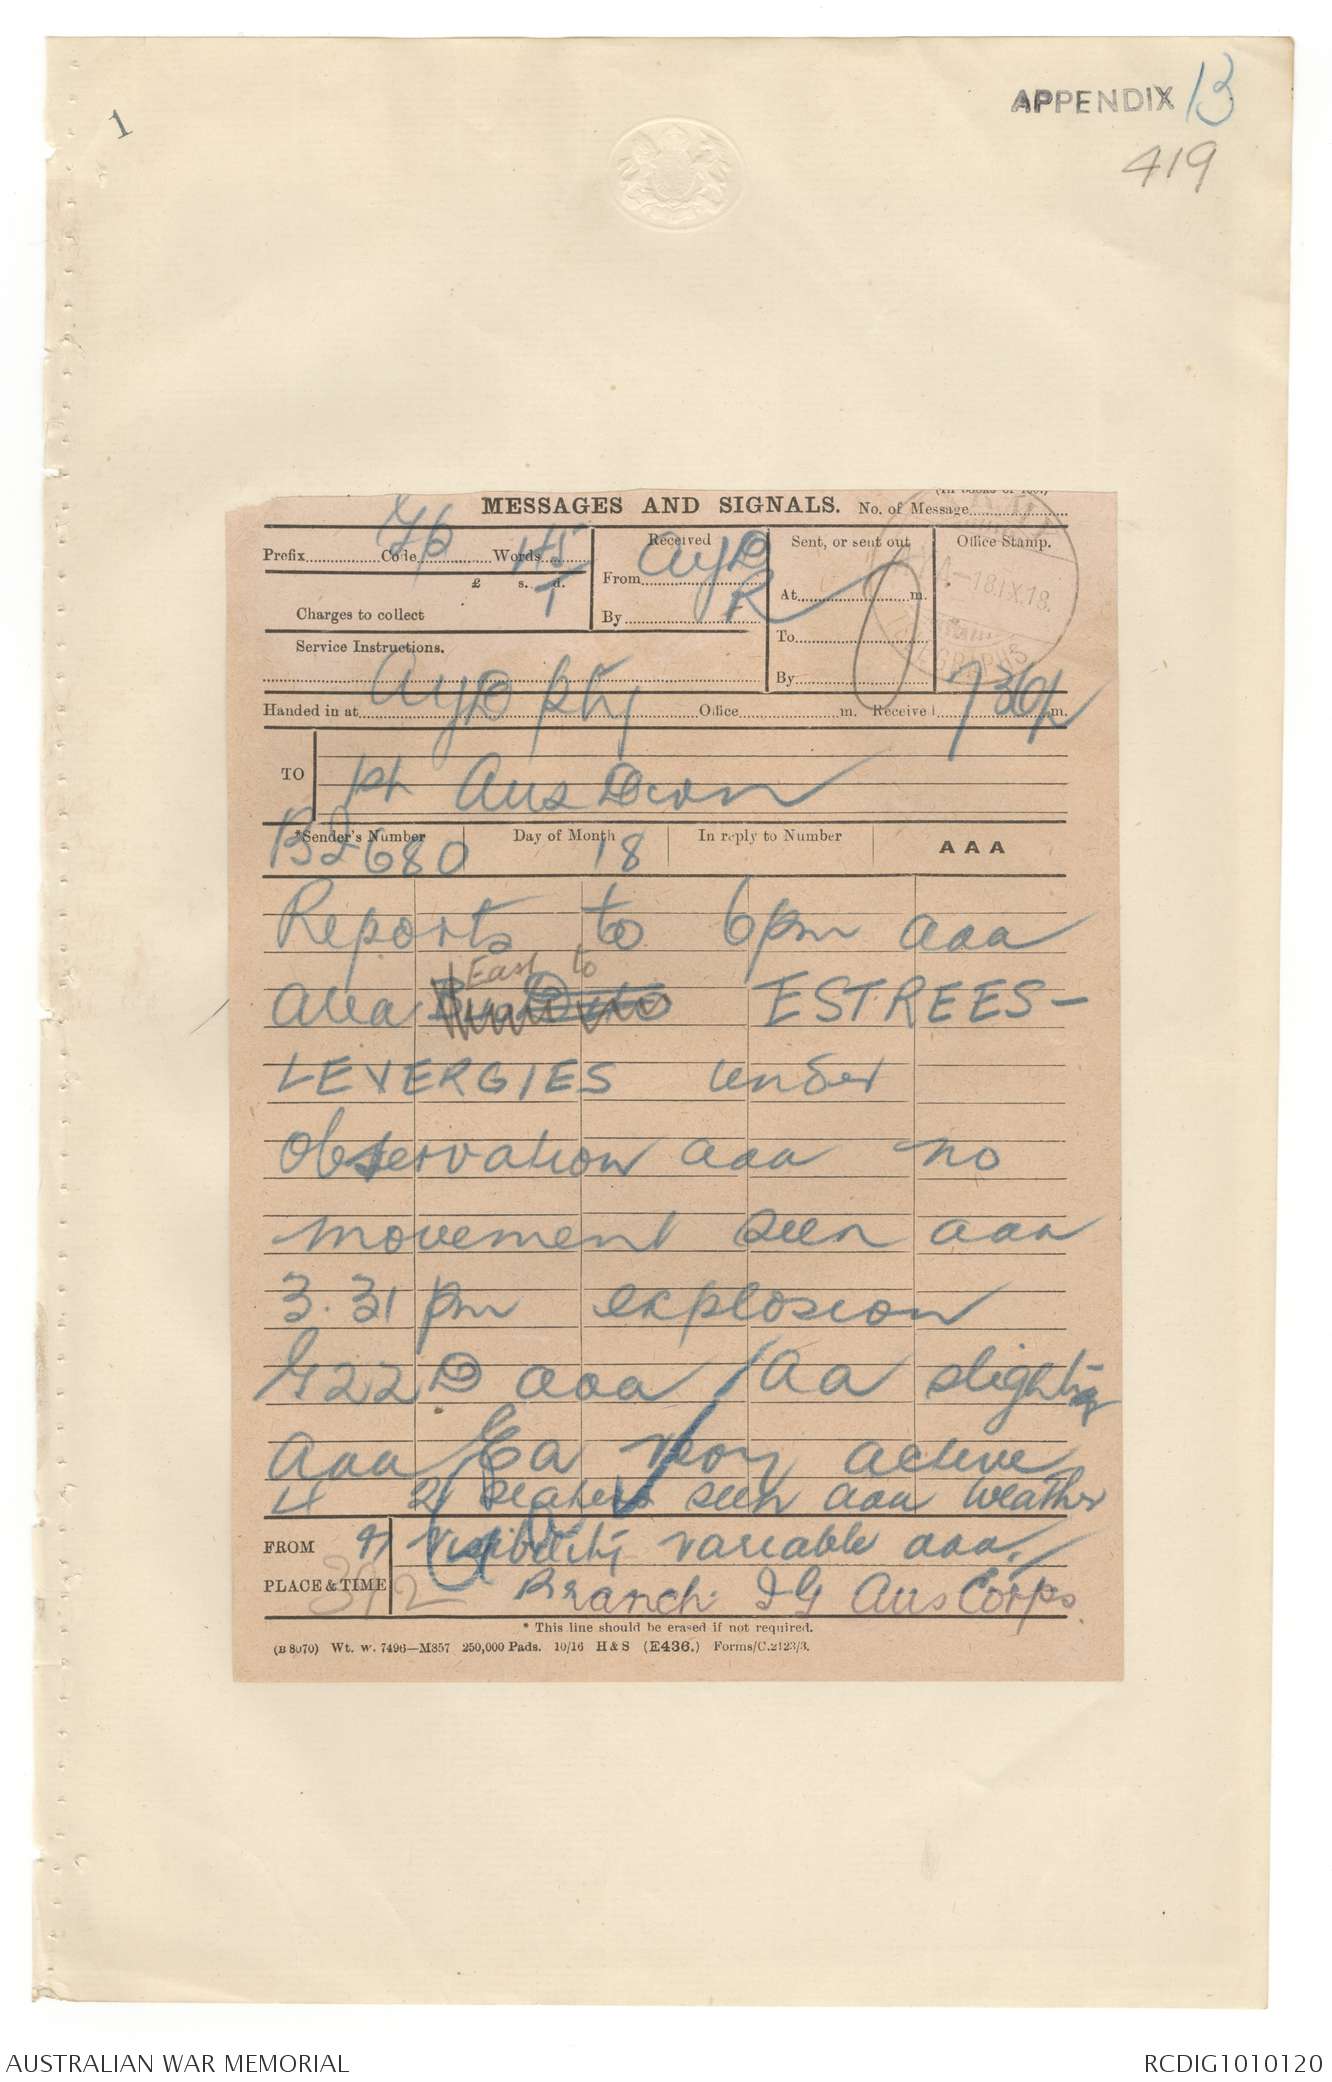 1
APPENDIX 13
419
MESSAGES AND SIGNALS. No. of Message
Prefix Code Words
£ s. d.
Charges to collect
Service Instructions.
Received
From AyD
By R
Sent, or sent out
At m.
To
By
Office Stamp.
18.IX.18.
TELEGRAPHS
AyD
Handed in at Office m. Received 7 36p m.
TO 1st Aus Divn
*Sender's Number Day of Month In reply to Number AAA
B2680 18
Reports to 6pm aaa
East to
area ESTREES-
LEVERGIES under
Observation aaa no
movement seen aaa
3.31 pm explosion
G22D aaa Aa slightly
Aaa Ea very active
4 2 seaters seen aaa Weather
FROM visibility variable aaa
PLACE & TIME Branch IG Aus Corps
392
* This line should be erased if not required.
(B 8070) Wt. w. 7496—M857 250,000 Pads. 10/16 H & S (E436.) Forms/C.2123/3.
AUSTRALIAN WAR MEMORIAL
RCDIG1010120